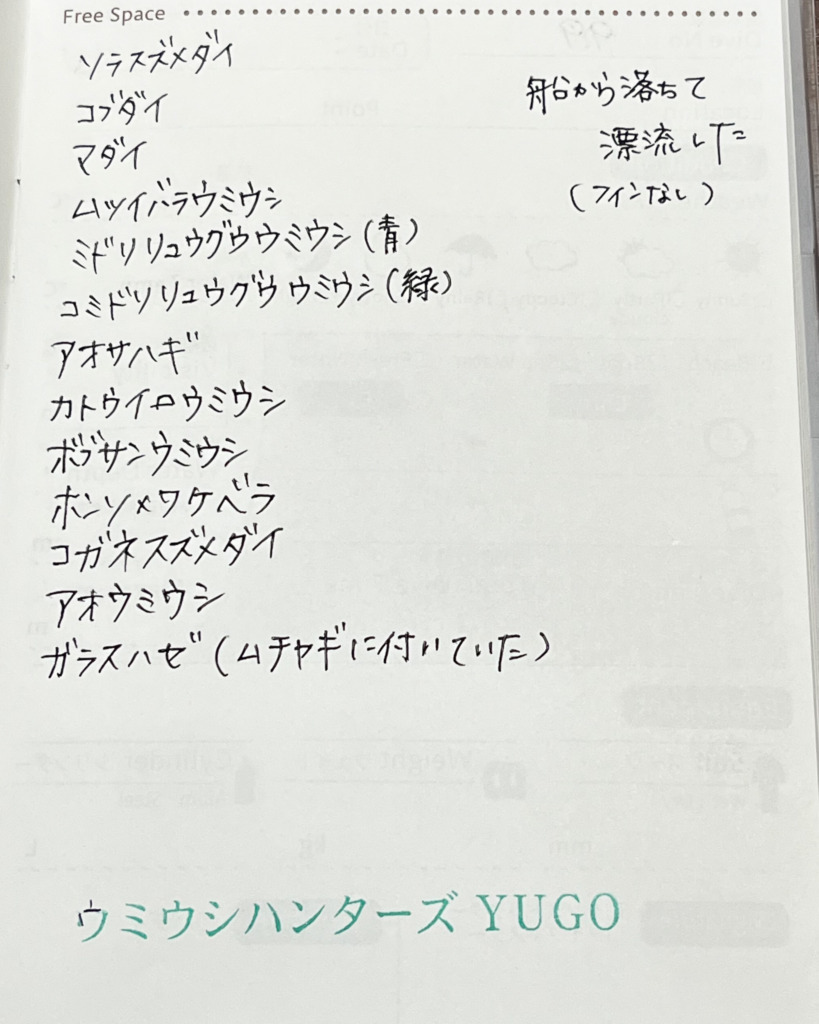 Free Space
ソラスズメダイ
コブダイ
マダイ
ムツイバラウミウシ
ミドリリュウグウウミウシ(青)
コミドリリュウグウウミウシ(緑)
アオサハギ
カトウイロウミウシ
ボブサンウミウシ
ホンソメワケベラ
コガネスズメダイ
アオウミウシ
ガラスハゼ(ムチヤギに付いていた)
船から落ちて
漂流した
(フィンなし)
ウミウシハンターズ YUGO